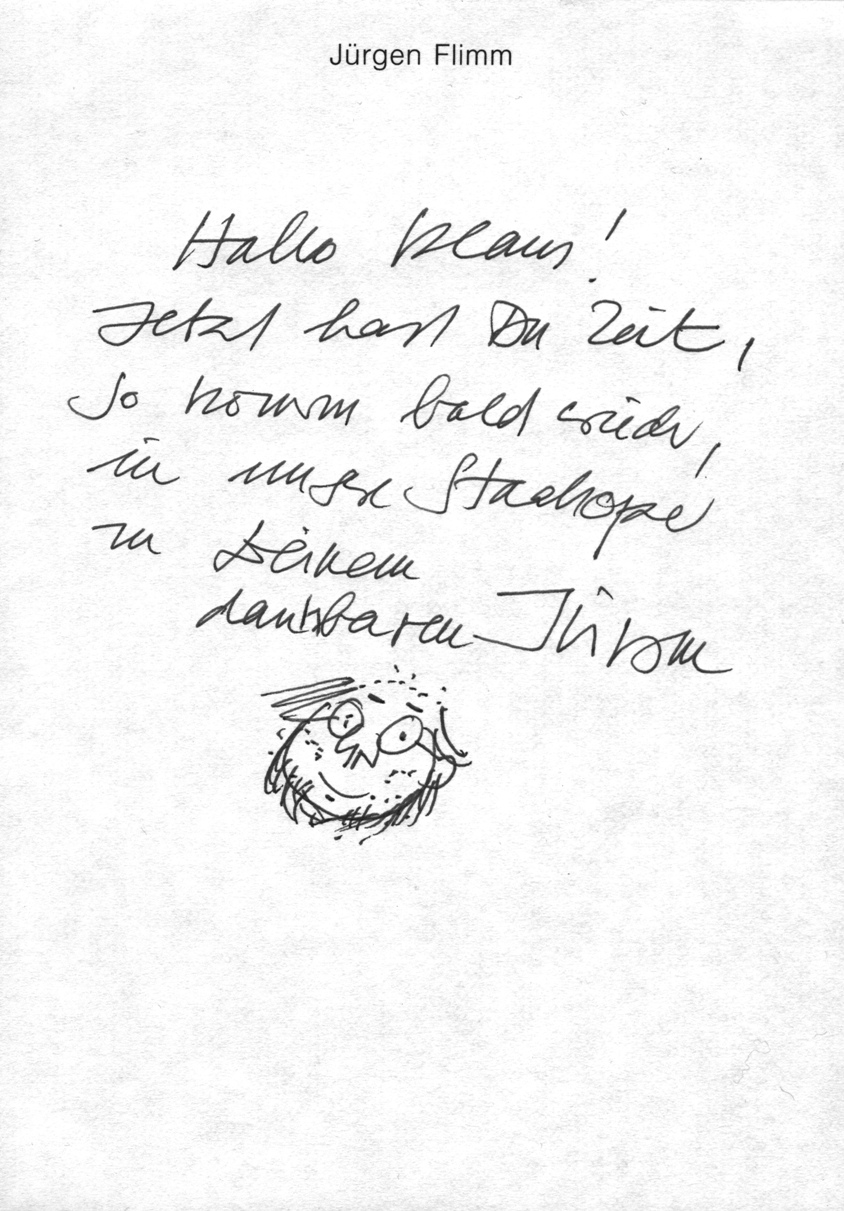 Jürgen Flimm
Hallo Klaus!
Jetzt hast Du Zeit,
so komm bald wieder,
in unsre Staatsoper
zu Deinem
dankbaren Jürgen